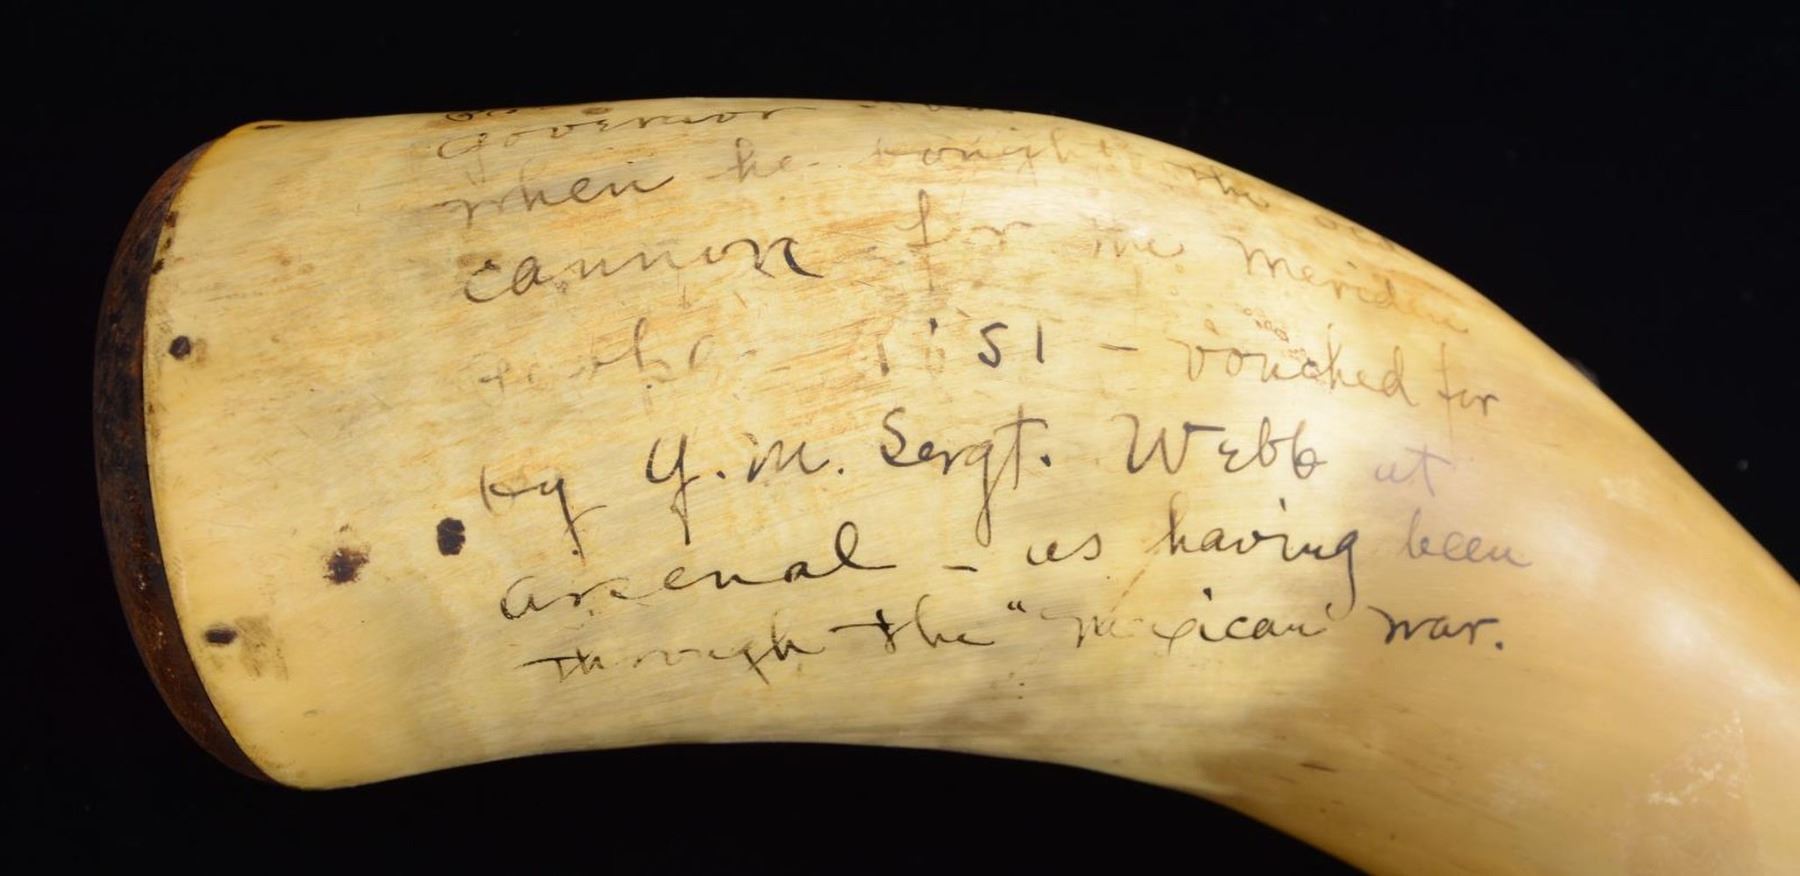 Governor
when he bought the old
cannon for the Meriden
1851 - vouched for
by Y.M. Sergt. Webb at
arsenal - as having been
through the "Mexican" war.